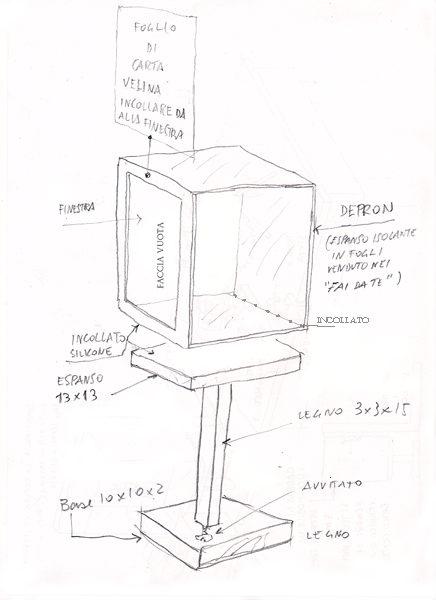 FOGLIO
DI
CARTA
VELINA
INCOLLARE DA
ALLA FINESTRA
FINESTRA
FACCIA VUOTA
DEPRON
(ESPANSO ISOLANTE
IN FOGLI
VENDUTO NEI
"FAI DA TE")
INCOLLATO
INCOLLATO
SILICONE
ESPANSO
13x13
LEGNO 3x3x15
AVVITATO
Base 10x10x2
LEGNO